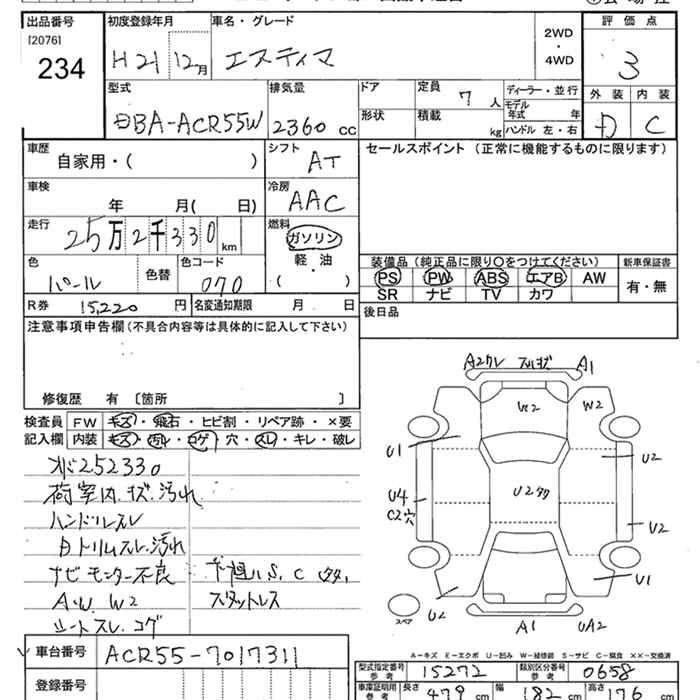 出品番号 初度登録年月 車名・グレード 評価点
[2076] 234
H21 12月 エスティマ 2WD・4WD 3
外装 内装
D C
型式 排気量 ドア 定員 7人 ディーラー・並行
DBA-ACR55W 2360 cc 形状 積載 kg モデル年式 年
ハンドル 左・右
車歴 シフト セールスポイント (正常に機能するものに限ります)
自家用・( ) AT
車検 冷房
年 月( 日) AAC
走行 燃料
25万2千330 km ガソリン
軽・油
( )
色 色替 色コード
パール 070
装備品 (純正品に限り○をつけてください) 新車保証書
PS PW ABS エアB AW 有・無
SR ナビ TV カワ
R券 15,220 円 名変通知期限 月 日
後日品
注意事項申告欄 (不具合内容等は具体的に記入して下さい)
修復歴 有 〔箇所 〕
検査員記入欄
FW キズ・飛石・ヒビ割・リペア跡・×要
内装 キズ・汚れ・コゲ・穴・スレ・キレ・破レ
252330
荷室内.キズ.汚れ
ハンドルスレ
内トリムスレ.汚れ
ナビモニター不良
A.W. W2
シートスレ.コゲ
下廻りS.C
スタットレス
A2 A1
W2 W2
U1 U2
U4 U2
C2穴 U2
U2 U1
スペア A1 UA2
A-キズ E-エクボ U-凹み W-補修跡 S-サビ C-腐食 ××-交換済
車台番号 ACR55-7017311
登録番号
型式指定番号 参考 15272 類別区分番号 参考 0658
車庫証明用 参考 長さ 479 cm 幅 182 cm 高さ 176 cm